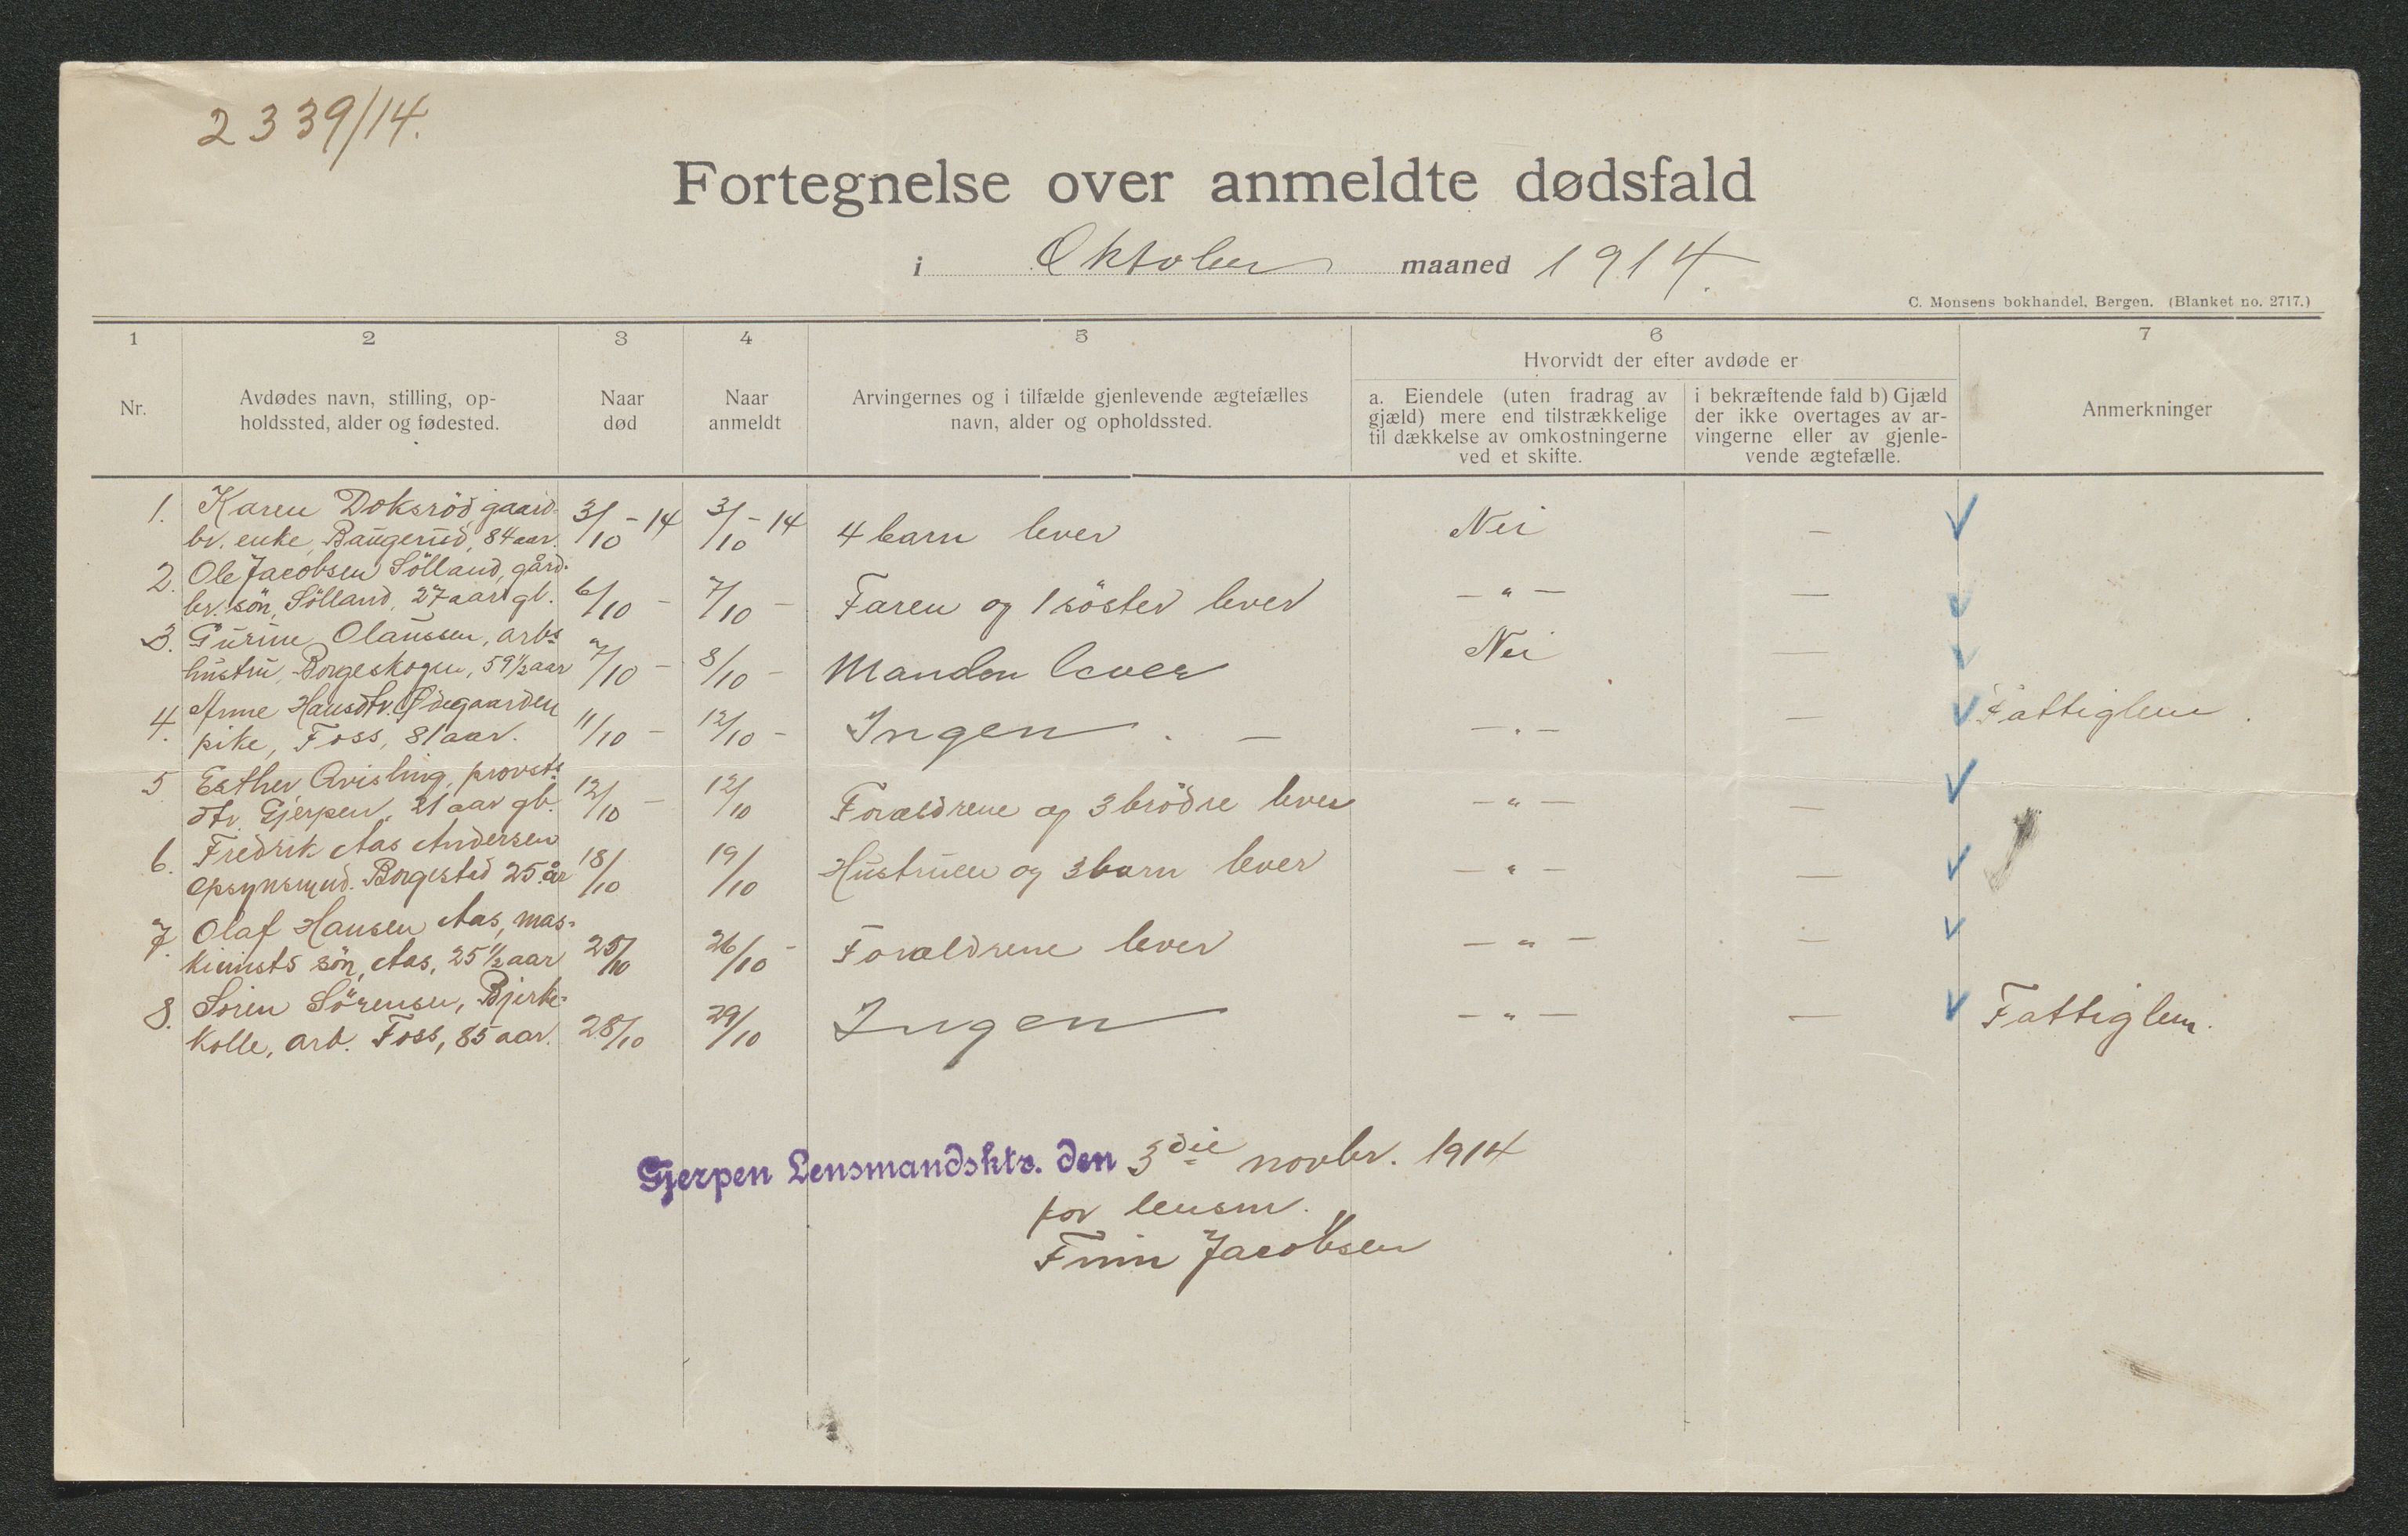 2339/14.
Fortegnelse over anmeldte dødsfald
i Oktober maaned 1914.
C. Monsens bokhandel, Bergen. (Blanket no. 2717.)
1 2 3 4 5 6 7
Hvorvidt der efter avdøde er
Nr.
Avdødes navn, stilling, op-
holdssted, alder og fødested.
Naar
død
Naar
anmeldt
Arvingernes og i tilfælde gjenlevende ægtefælles
navn, alder og opholdssted.
a. Eiendele (uten fradrag av
gjæld) mere end tilstrækkelige
til dækkelse av omkostningerne
ved et skifte.
i bekræftende fald b) Gjæld
der ikke overtages av ar-
vingerne eller av gjenle-
vende ægtefælle.
Anmerkninger
1. Karen Doksröd, gaard-
br. enke, Baugerud, 84 aar. 3/10 - 14 3/10 - 14 4 barn lever Nei —
2. Ole Jacobsen Sölland, gård-
br. sön, Sölland, 27 aar gl. 6/10 - 7/10 - Faren og 1 söster lever — " — —
3. Gurine Olaussen, arbs
hustru, Borgeskogen, 59 1/2 aar 7/10 - 8/10 - Manden lever Nei —
4. Anne Hansdtr. Ødegaarden
pike, Foss, 81 aar. 11/10 - 12/10 - Ingen. — — " — — Fattiglem.
5 Esther Qvisling, provsts
dtr. Gjerpen, 21 aar gl. 12/10 - 12/10 Forældrene og 3 brödre lever — " — —
6. Fredrik Aas Andersen
opsynsmnd. Borgestad 25 år 18/10 19/10 Hustruen og 3 barn lever — " — —
7. Olaf Hansen Aas, mas-
kinists sön, Aas, 25 1/2 aar 25/10 26/10 - Forældrene lever — " — —
8. Sören Sörensen, Bjerke-
kolle, arb. Foss, 85 aar. 28/10 29/10 Ingen — " — — Fattiglem.
Gjerpen Lensmandsktr. den 3die novbr. 1914
for lensm.
Finn Jacobsen